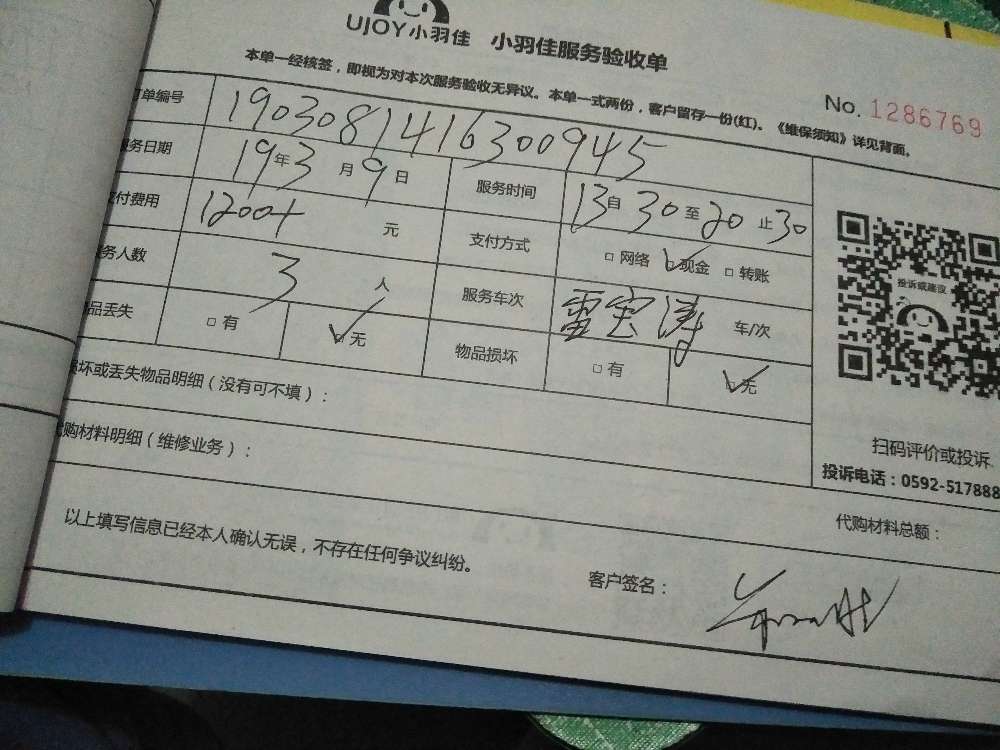 UJOY小羽佳 小羽佳服务验收单
本单一经核签，即视为对本次服务验收无异议。本单一式两份，客户留存一份(红)。《维保须知》详见背面。
No. 1286769
单编号 1903081416300945
务日期 19年3月9日 服务时间 13自30至20止30
付费用 1200+ 元 支付方式 □ 网络 ☑ 现金 □ 转账
务人数 3 人 服务车次 雷宝涛 车/次
品丢失 □ 有 ☑ 无 物品损坏 □ 有 ☑ 无
坏或丢失物品明细（没有可不填）：
购材料明细（维修业务）：
投诉或建议
扫码评价或投诉
投诉电话：0592-517888
代购材料总额：
以上填写信息已经本人确认无误，不存在任何争议纠纷。
客户签名：